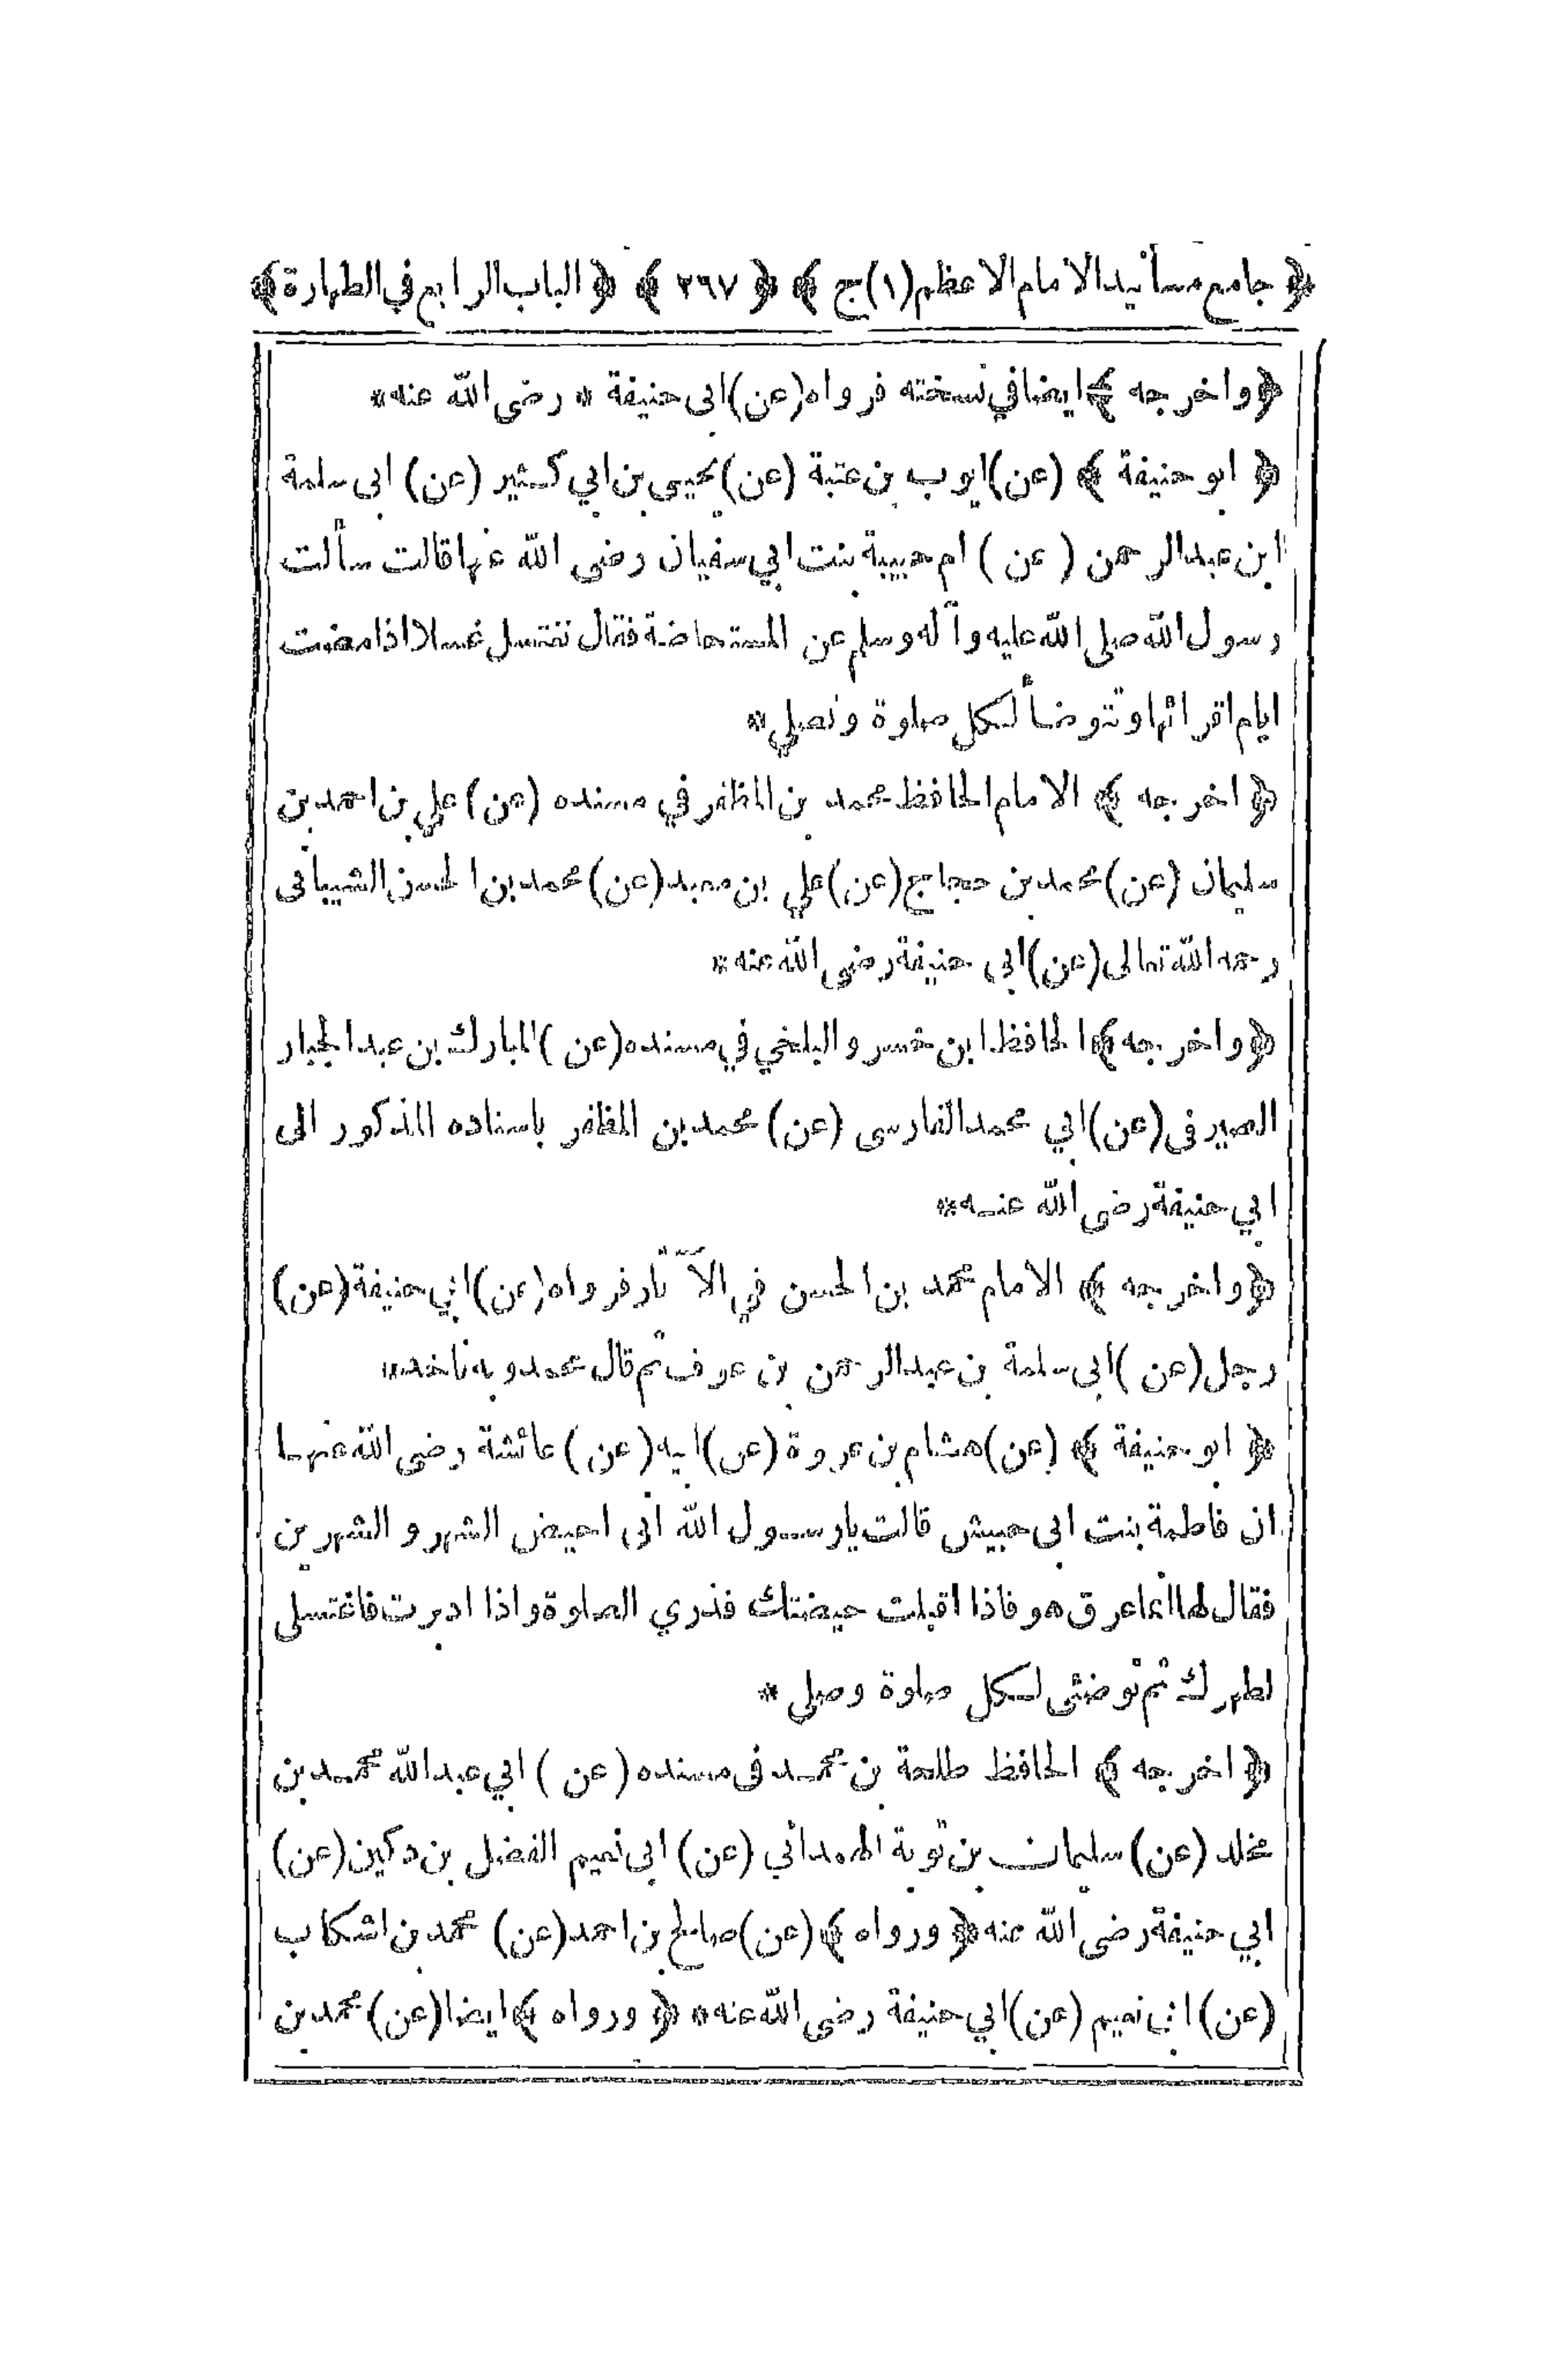 ﴿ جامع مسانيد الامام الاعظم (١) ج ﴾ ﴿ ٢٦٧ ﴾ ﴿ الباب الرابع في الطهارة ﴾
﴿ واخرجه ﴾ ايضا في نسخته فرواه (عن) ابى حنيفة * رضى الله عنه *
﴿ ابو حنيفة ﴾ (عن) ايوب بن عتبة (عن) يحيى بن ابي كثير (عن) ابى سلمة
ابن عبد الرحمن (عن) ام حبيبة بنت ابي سفيان رضى الله عنها قالت سألت
رسول الله صلى الله عليه وآله وسلم عن المستحاضة فقال تغتسل غسلا اذا مضت
ايام اقرائها وتتوضأ لكل صلوة وتصلي *
﴿ اخرجه ﴾ الامام الحافظ محمد بن المظفر في مسنده (عن) علي بن احمد بن
سليمان (عن) محمد بن حجاج (عن) علي بن معبد (عن) محمد بن الحسن الشيبانى
رحمه الله تعالى (عن) ابى حنيفة رضى الله عنه *
﴿ واخرجه ﴾ الحافظ ابن خسرو البلخي في مسنده (عن) المبارك بن عبد الجبار
الصيرفى (عن) ابي محمد الفارسى (عن) محمد بن المظفر باسناده المذكور الى
ابي حنيفة رضى الله عنه *
﴿ واخرجه ﴾ الامام محمد بن الحسن في الآثار فرواه (عن) ابي حنيفة (عن)
رجل (عن) ابى سلمة بن عبد الرحمن بن عوف ثم قال محمد وبه ناخذ *
﴿ ابو حنيفة ﴾ (عن) هشام بن عروة (عن) ابيه (عن) عائشة رضى الله عنها
ان فاطمة بنت ابى حبيش قالت يا رسول الله انى احيض الشهر و الشهرين
فقال لها انما عرق هو فاذا اقبلت حيضتك فذري الصلوة واذا ادبرت فاغتسلى
لطهرك ثم توضئى لكل صلوة وصلى *
﴿ اخرجه ﴾ الحافظ طلحة بن محمد فى مسنده (عن) ابي عبد الله محمد بن
مخلد (عن) سليمان بن توبة الهمداني (عن) ابى نعيم الفضل بن دكين (عن)
ابي حنيفة رضى الله عنه ﴿ ورواه ﴾ (عن) صالح بن احمد (عن) محمد بن اشكاب
(عن) ابى نعيم (عن) ابي حنيفة رضى الله عنه * ﴿ ورواه ﴾ ايضا (عن) محمد بن